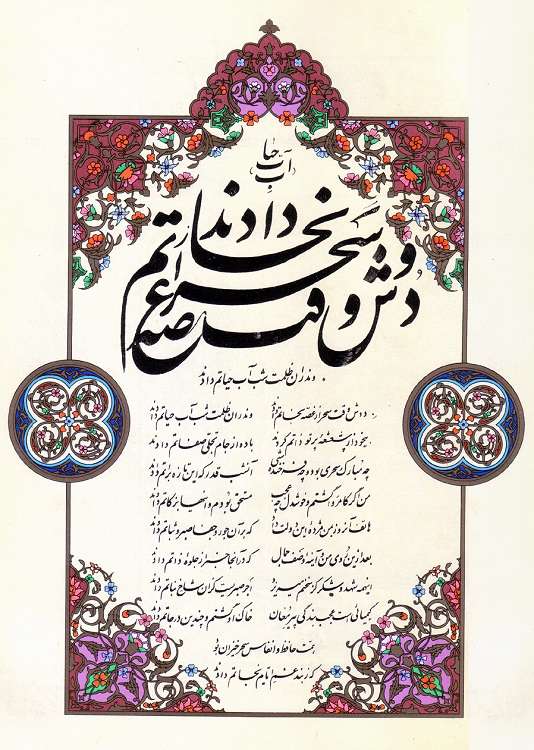 آب حیات
دوش وقت سحر از غصه نجاتم دادند
وندران ظلمت شب آب حیاتم دادند
دوش وقت سحر از غصه نجاتم دادند وندران ظلمت شب آب حیاتم دادند
بیخود از شعشعه پرتو ذاتم کردند باده از جام تجلی صفاتم دادند
چه مبارک سحری بود و چه فرخنده شبی آنشب قدر که این تازه براتم دادند
من اگر کامروا گشتم و خوشدل چه عجب مستحق بودم و اینها بزکاتم دادند
هاتف آنروز بمن مژده این دولت داد که بر آن جور و جفا صبر و ثباتم دادند
بعد ازین روی من و آینه وصف جمال که در آنجا خبر از جلوه ذاتم دادند
اینهمه شهد و شکر کز سخنم میریزد اجر صبریست کزان شاخ نباتم دادند
کیمیائیست عجب بندگی پیر مغان خاک او گشتم و چندین درجاتم دادند
همت حافظ و انفاس سحرخیزان بود
که ز بند غم ایام نجاتم دادند